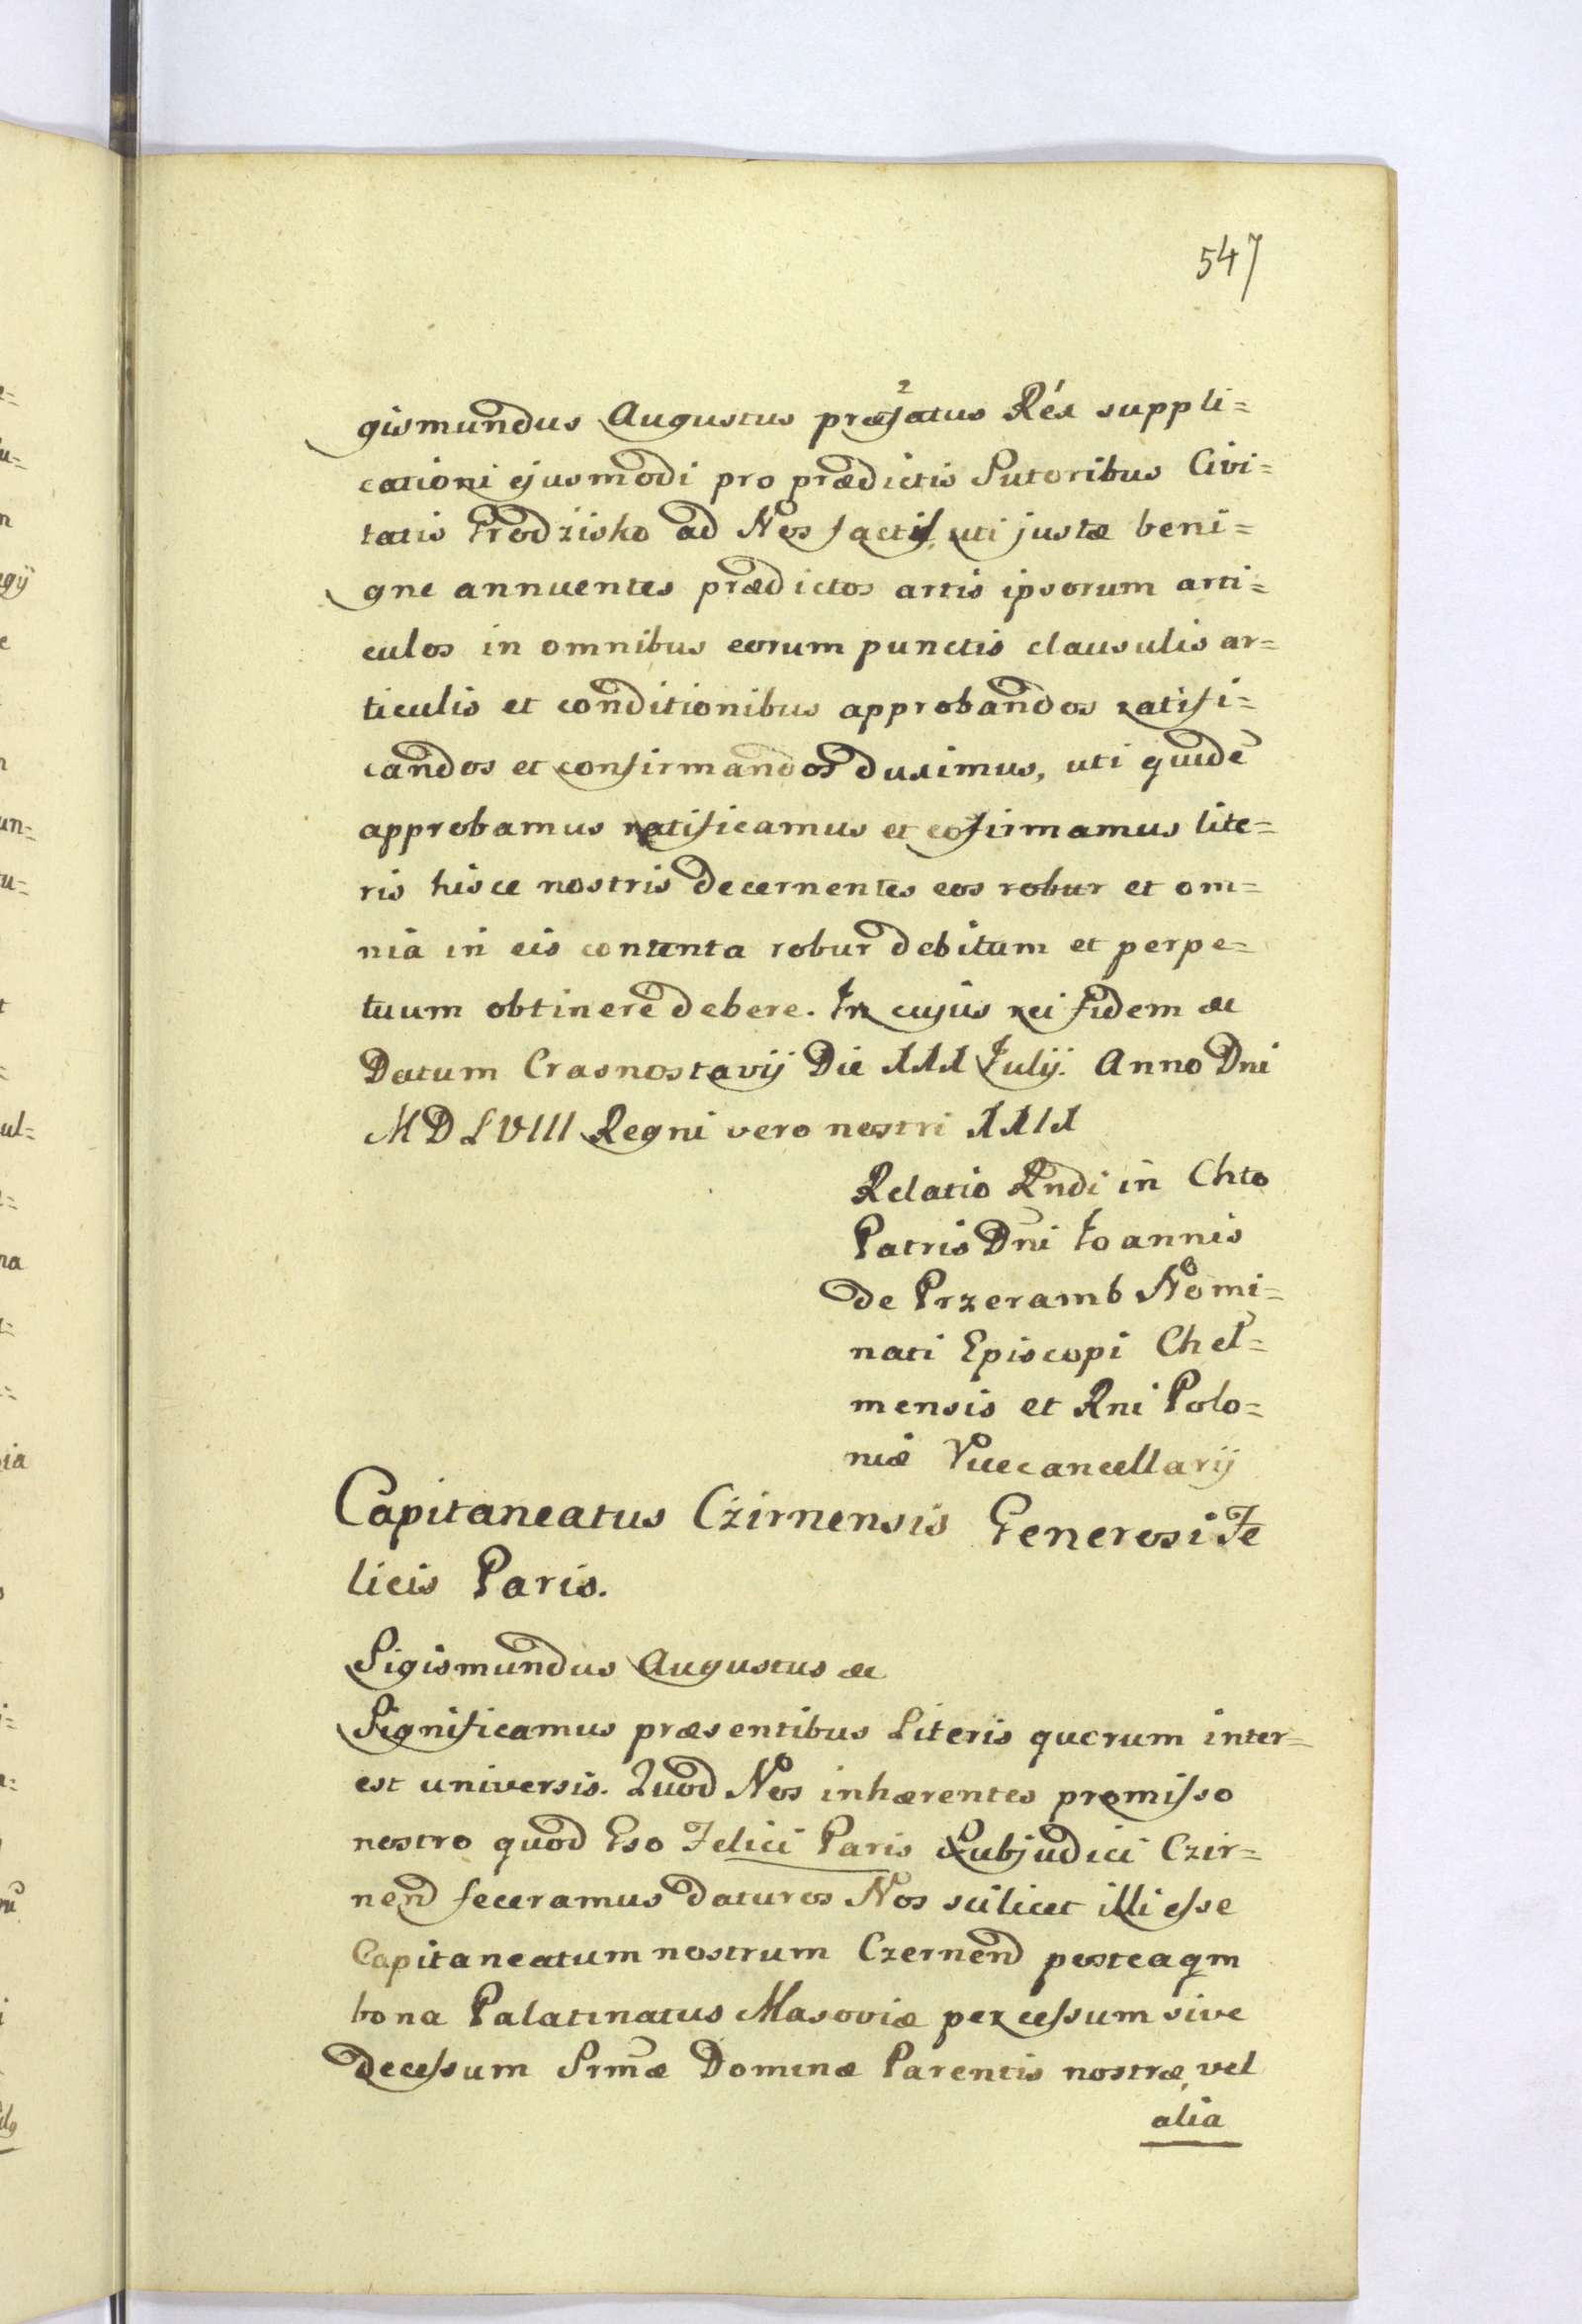 547
gismundus Augustus præfatus Réx suppli=
cationi ejusmodi pro prædictis Sutoribus Civi=
tatis Grodzisko ad Nos factis uti justæ beni=
gne annuentes prædictos artis ipsorum arti=
culos in omnibus eorum punctis clausulis ar=
ticulis et conditionibus approbandos ratifi=
candos et confirmandos duximus, uti quidē
approbamus ratificamus et cofirmamus lite=
ris hisce nostris decernentes eos robur et om=
nia in eis contenta robur debitum et perpe=
tuum obtinere debere. In cujus rei fidem &c
Datum Crasnostavij Die XXX Julij. Anno Dni
MDLVIII Regni vero nostri XXIX
Relatio Rndi in Chto
Patris Dni Joannis
de Przeramb Nomi=
nati Episcopi Chel=
mensis et Rni Polo=
niæ Vicecancellarij
Capitaneatus Czirnensis Generosi Fe
licis Paris.
Sigismundus Augustus &c
Significamus præsentibus Literis quorum inter=
est universis. Quod Nos inhærentes promisso
nostro quod Gso Felici Paris Subjudici Czir=
nend feceramus daturos Nos scilicet illi esse
Capitaneatum nostrum Czernend posteaqm
bona Palatinatus Masoviæ per cessum sive
decessum Srmæ Dominæ Parentis nostræ, vel
alia